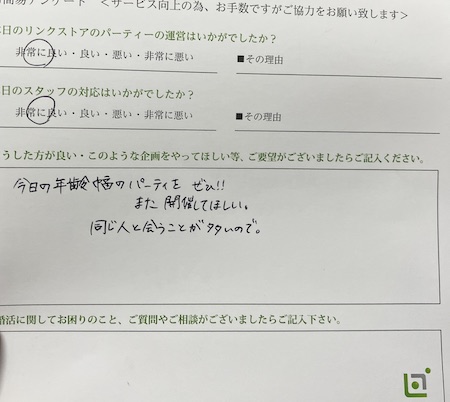 簡易アンケート <サービス向上の為、お手数ですがご協力をお願い致します>
日のリンクストアのパーティーの運営はいかがでしたか?
非常に良い・良い・悪い・非常に悪い ■その理由
日のスタッフの対応はいかがでしたか?
非常に良い・良い・悪い・非常に悪い ■その理由
うした方が良い・このような企画をやってほしい等、ご要望がございましたらご記入ください。
今日の年齢幅のパーティを ぜひ!!
また 開催してほしい。
同じ人と会うことが多いので。
婚活に関してお困りのこと、ご質問やご相談がございましたらご記入下さい。